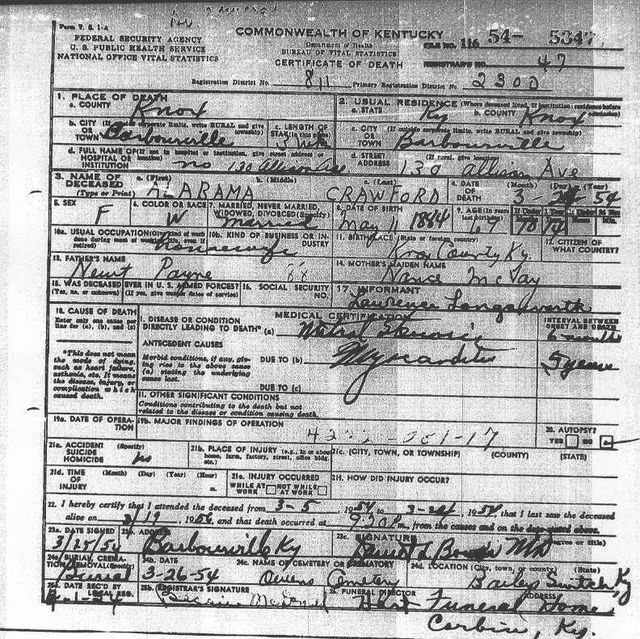 Form V. S. 1-A
COMMONWEALTH OF KENTUCKY
FEDERAL SECURITY AGENCY
U. S. PUBLIC HEALTH SERVICE
NATIONAL OFFICE VITAL STATISTICS
Department of Health
BUREAU OF VITAL STATISTICS
CERTIFICATE OF DEATH
FILE NO. 116 54- 5347
REGISTRAR'S NO. 47
Registration District No. 811 Primary Registration District No. 2300
1. PLACE OF DEATH
a. COUNTY Knox
2. USUAL RESIDENCE (Where deceased lived, if institution: residence before
a. STATE Ky b. COUNTY Knox
b. CITY OR TOWN Barbourville
c. LENGTH OF
c. CITY OR TOWN Barbourville
d. FULL NAME OF HOSPITAL OR INSTITUTION no 130
d. STREET ADDRESS 130 Allison Ave
3. NAME OF DECEASED (Type or Print) a. (First) ALABAMA b. (Middle) c. (Last) CRAWFORD
4. DATE OF DEATH (Month) (Day) (Year) 3- 54
5. SEX F
6. COLOR OR RACE W
7. MARRIED, NEVER MARRIED, WIDOWED, DIVORCED (Specify)
8. DATE OF BIRTH May 1884
10a. USUAL OCCUPATION Housewife
10b. KIND OF BUSINESS OR INDUSTRY
11. BIRTHPLACE (State or foreign country) Knox County Ky.
12. CITIZEN OF WHAT COUNTRY?
13. FATHER'S NAME Newt Payne
14. MOTHER'S MAIDEN NAME Nance
15. WAS DECEASED EVER IN U. S. ARMED FORCES? (Yes, no, or unknown) (If yes, give war or dates of service)
16. SOCIAL SECURITY NO.
17. INFORMANT Lawrence
18. CAUSE OF DEATH
Enter only one cause per line for (a), (b), and (c)
MEDICAL CERTIFICATION
INTERVAL BETWEEN ONSET AND DEATH
I. DISEASE OR CONDITION DIRECTLY LEADING TO DEATH* (a) Mitral Stenosis
ANTECEDENT CAUSES
Morbid conditions, if any, giving rise to the above cause (a) stating the underlying cause last.
DUE TO (b) Myocarditis 5 years
DUE TO (c)
*This does not mean the mode of dying, such as heart failure, asthenia, etc. It means the disease, injury, or complication which caused death.
II. OTHER SIGNIFICANT CONDITIONS
Conditions contributing to the death but not related to the disease or condition causing death.
19a. DATE OF OPERATION
19b. MAJOR FINDINGS OF OPERATION
20. AUTOPSY?
YES NO
21a. ACCIDENT SUICIDE HOMICIDE (Specify) no
21b. PLACE OF INJURY (e.g., in or about home, farm, factory, street, office bldg. etc.)
21c. (CITY, TOWN, OR TOWNSHIP) (COUNTY) (STATE)
21d. TIME OF INJURY (Month) (Day) (Year) (Hour) m.
21e. INJURY OCCURRED
WHILE AT WORK NOT WHILE AT WORK
21f. HOW DID INJURY OCCUR?
22. I hereby certify that I attended the deceased from 3-5, 1954 to 3-24, 1954, that I last saw the deceased
alive on 3/19, and that death occurred at m., from the causes and on the date stated above.
23a. DATE SIGNED 3/25/54
23b. ADDRESS Barbourville Ky
23c. SIGNATURE MD
24a. BURIAL, CREMATION, REMOVAL (Specify) Burial
24b. DATE 3-26-54
24c. NAME OF CEMETERY OR CREMATORY Owens Cemetery
24d. LOCATION (City, town, or county) (State) Bailey Switch Ky
25a. DATE REC'D BY LOCAL REG.
25b. REGISTRAR'S SIGNATURE
Hart Funeral Home
ADDRESS
Corbin, Ky.